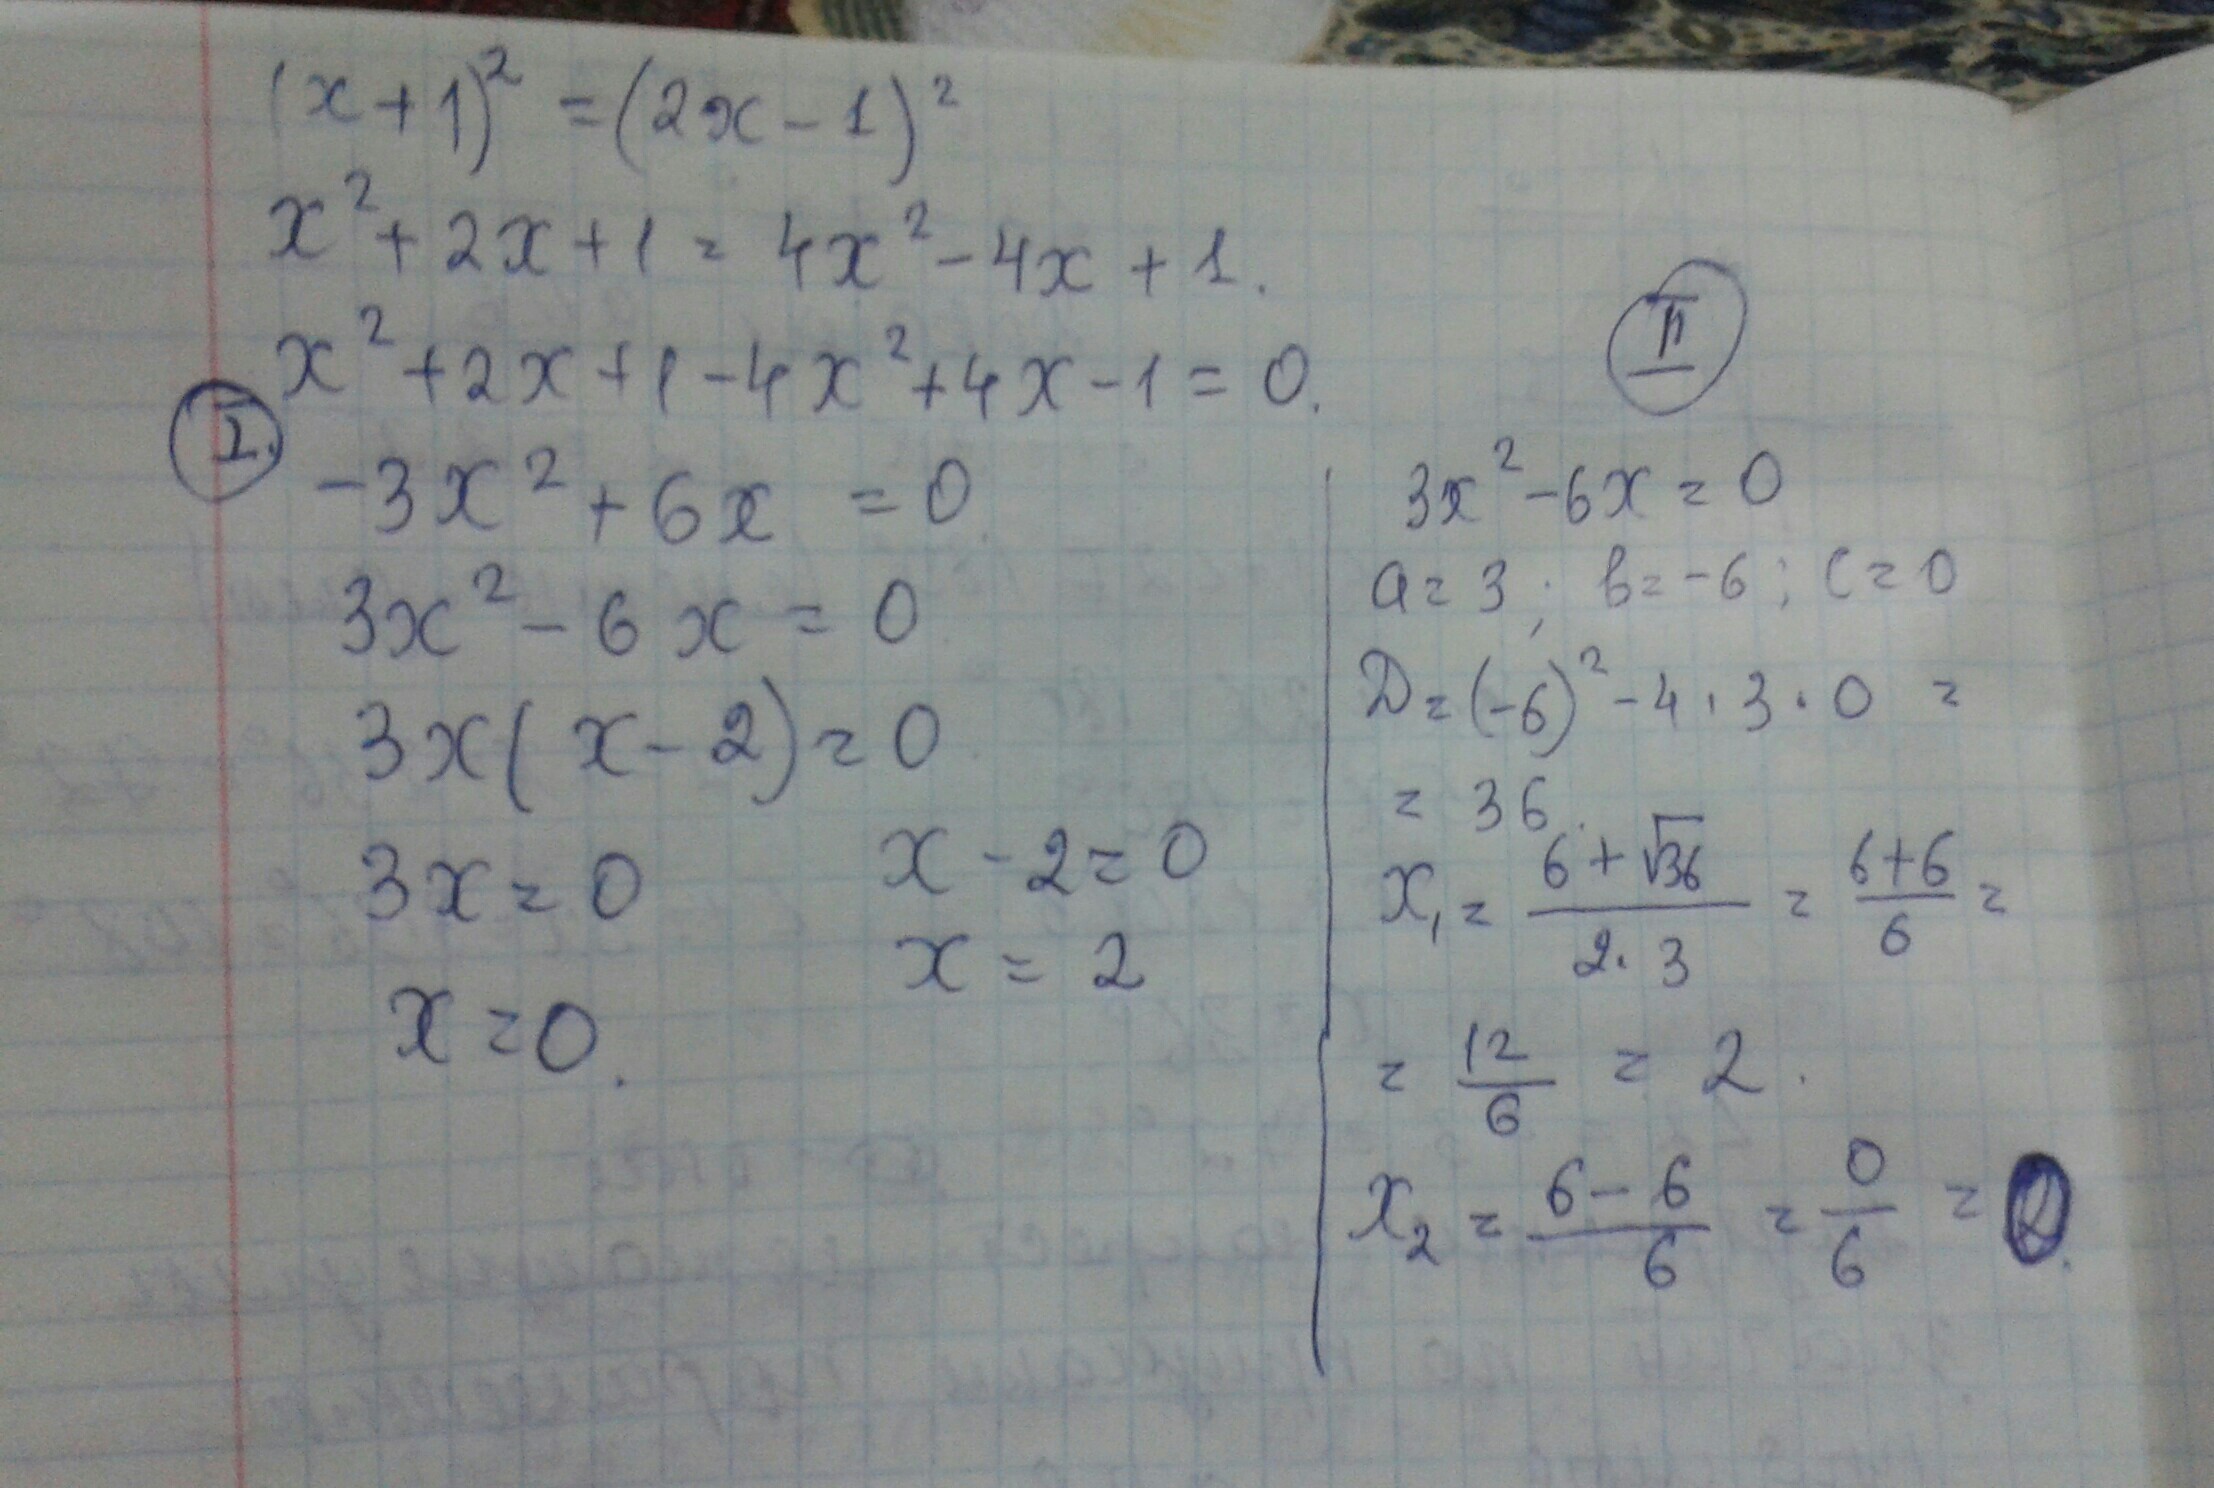 (x+1)² = (2x-1)²
x² + 2x + 1 = 4x² - 4x + 1.
x² + 2x + 1 - 4x² + 4x - 1 = 0.
I.
-3x² + 6x = 0
3x² - 6x = 0
3x(x-2) = 0
3x = 0 x - 2 = 0
x = 0. x = 2
II
3x² - 6x = 0
a = 3; b = -6; c = 0
D = (-6)² - 4·3·0 =
= 36.
x₁ = (6+√36)/(2·3) = (6+6)/6 =
= 12/6 = 2.
x₂ = (6-6)/6 = 0/6 = 0.